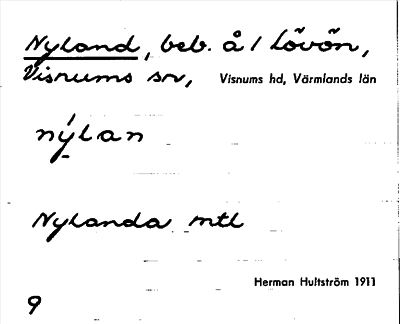 Nyland, beb. å / Lövön,
Visnums sn, Visnums hd, Värmlands län
nýlan
Nylanda mtl
Herman Hultström 1911
9